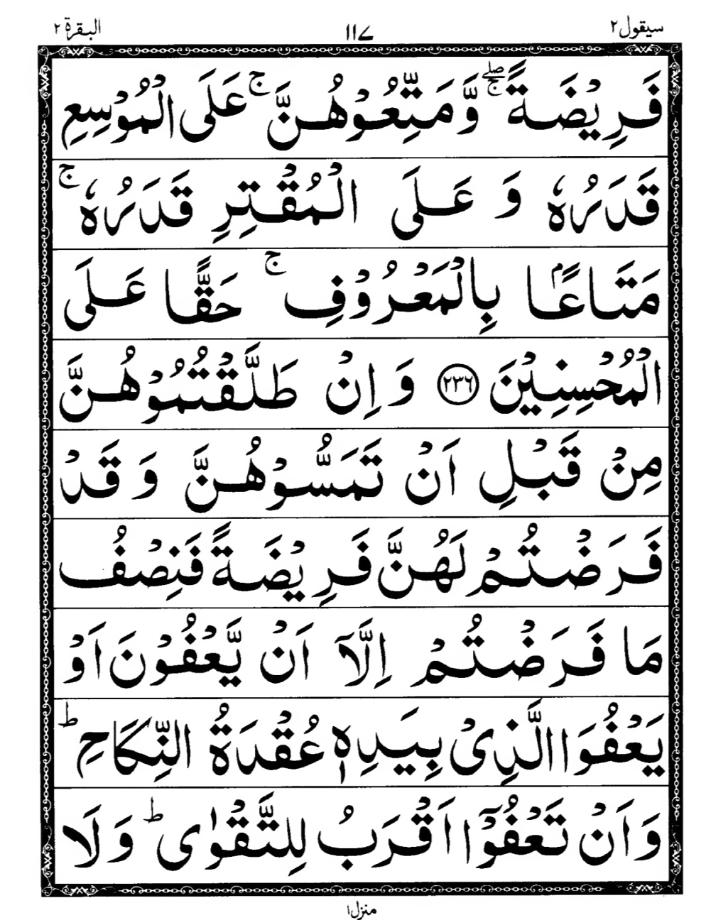 سیقول ٢ ١١٧ البقرة ٢
فَرِیْضَةً ۖۚ وَّمَتِّعُوْهُنَّ ۚ عَلَی الْمُوْسِعِ
قَدَرُهٗ وَ عَلَی الْمُقْتِرِ قَدَرُهٗ ۚ
مَتَاعًۢا بِالْمَعْرُوْفِ ۚ حَقًّا عَلَی
الْمُحْسِنِیْنَ ﴿٢٣٦﴾ وَ اِنْ طَلَّقْتُمُوْهُنَّ
مِنْ قَبْلِ اَنْ تَمَسُّوْهُنَّ وَ قَدْ
فَرَضْتُمْ لَهُنَّ فَرِیْضَةً فَنِصْفُ
مَا فَرَضْتُمْ اِلَّاۤ اَنْ یَّعْفُوْنَ اَوْ
یَعْفُوَا الَّذِیْ بِیَدِهٖ عُقْدَةُ النِّكَاحِ ؕ
وَ اَنْ تَعْفُوْۤا اَقْرَبُ لِلتَّقْوٰی ؕ وَ لَا
منزل ١